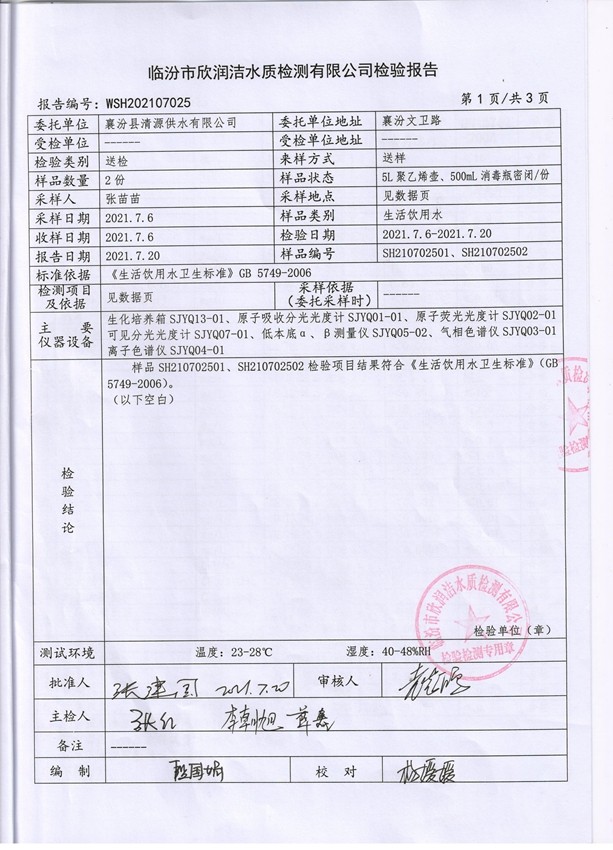 临汾市欣润洁水质检测有限公司检验报告
报告编号：WSH202107025 第 1 页/共 3 页
委托单位 襄汾县清源供水有限公司 委托单位地址 襄汾文卫路
受检单位 ------ 受检单位地址 ------
检验类别 送检 来样方式 送样
样品数量 2 份 样品状态 5L 聚乙烯壶、500mL 消毒瓶密闭/份
采样人 张苗苗 采样地点 见数据页
采样日期 2021.7.6 样品类别 生活饮用水
收样日期 2021.7.6 检验日期 2021.7.6-2021.7.20
报告日期 2021.7.20 样品编号 SH210702501、SH210702502
标准依据 《生活饮用水卫生标准》GB 5749-2006
检测项目及依据 见数据页 采样依据（委托采样时） ------
主要仪器设备
生化培养箱 SJYQ13-01、原子吸收分光光度计 SJYQ01-01、原子荧光光度计 SJYQ02-01
可见分光光度计 SJYQ07-01、低本底α、β测量仪 SJYQ05-02、气相色谱仪 SJYQ03-01
离子色谱仪 SJYQ04-01
检验结论
样品 SH210702501、SH210702502 检验项目结果符合《生活饮用水卫生标准》（GB
5749-2006）。
（以下空白）
检验单位（章）
临汾市欣润洁水质检测有限公司
检验检测专用章
测试环境 温度：23-28℃ 湿度：40-48%RH
批准人 张建国 2021.7.20 审核人
主检人
备注 ------
编制 校对